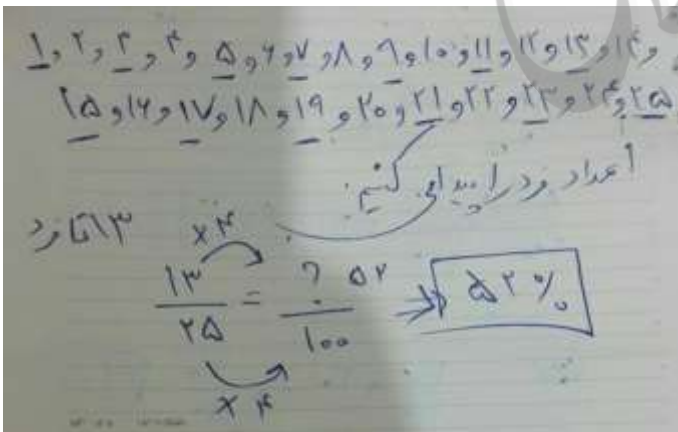 ۱, ۲, ۳, ۴, ۵, ۶, ۷, ۸, ۹, ۱۰, ۱۱, ۱۲, ۱۳, ۱۴,
۱۵, ۱۶, ۱۷, ۱۸, ۱۹, ۲۰, ۲۱, ۲۲, ۲۳, ۲۴, ۲۵
اعداد فرد را پیدا می کنیم:
۱۳ تا فرد
×۴
۱۳/۲۵ = ?/۱۰۰ ۵۲ ⇒ ۵۲%
×۴